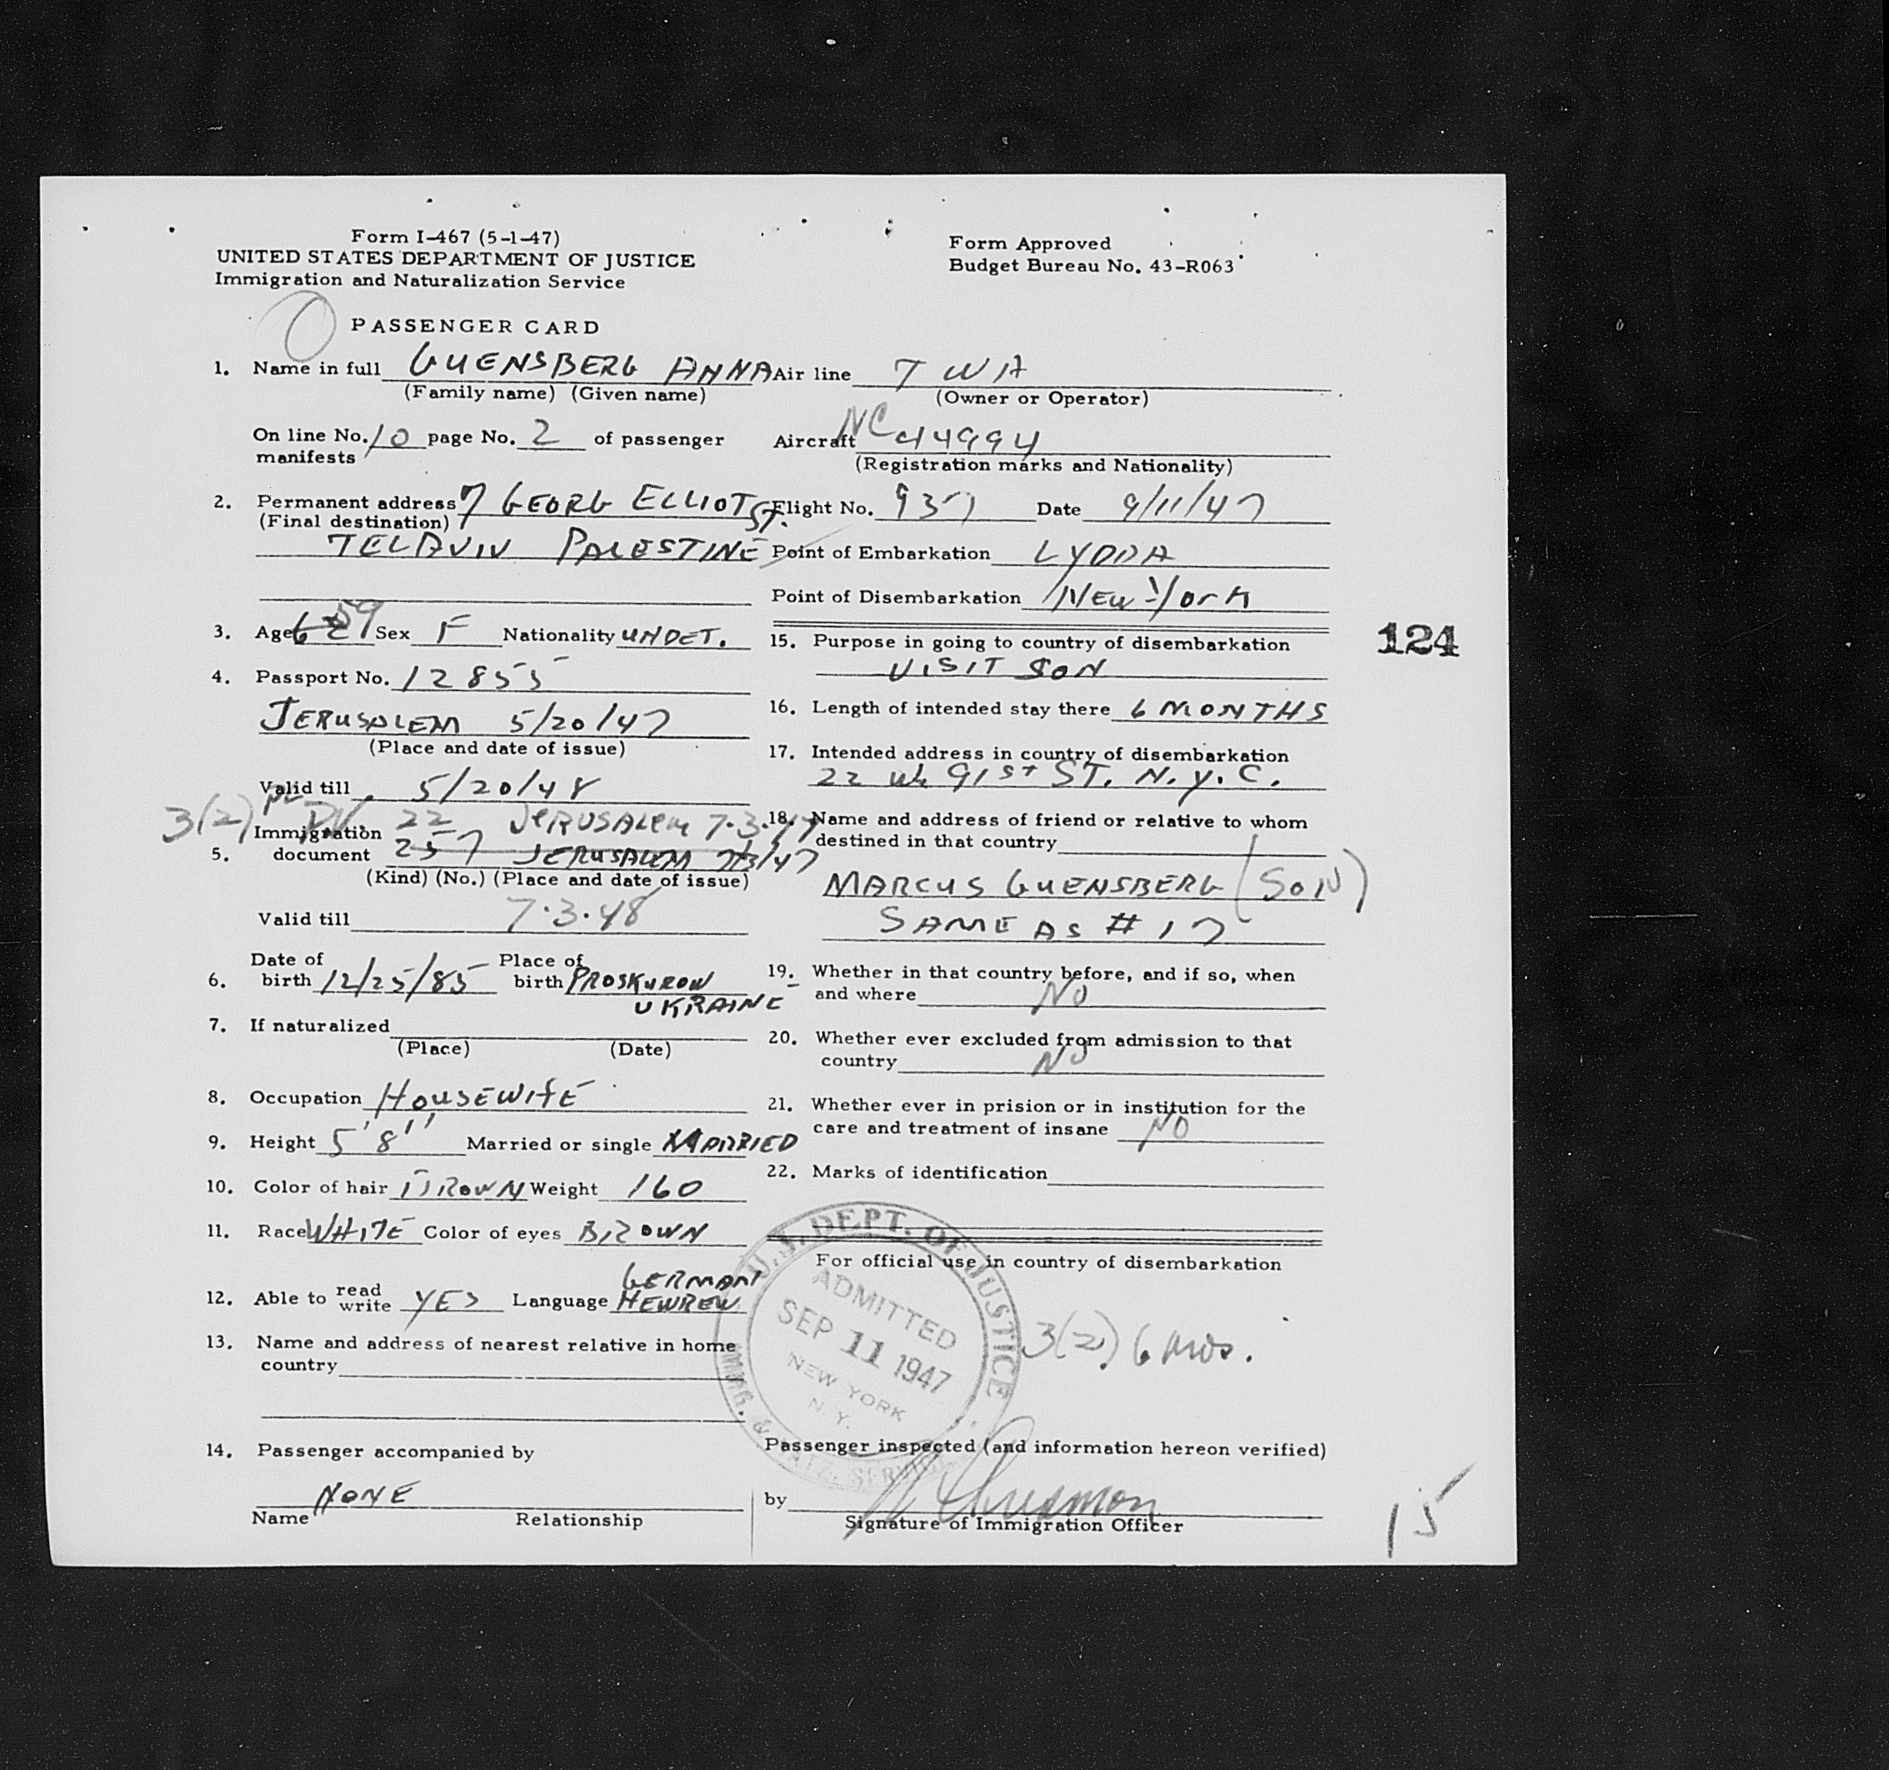 Form I-467 (5-1-47)
UNITED STATES DEPARTMENT OF JUSTICE
Immigration and Naturalization Service
Form Approved
Budget Bureau No. 43-R063
PASSENGER CARD
1. Name in full GUENSBERG ANNA
(Family name) (Given name)
On line No. 10 page No. 2 of passenger
manifests
2. Permanent address 7 GEORG ELLIOT ST.
(Final destination)
TELAVIV PALESTINE
3. Age 59 Sex F Nationality UNDET.
4. Passport No. 12855
JERUSALEM 5/20/47
(Place and date of issue)
Valid till 5/20/48
3(2) 22 JERUSALEM 7.3.47
5. Immigration
document 257 JERUSALEM 7/3/47
(Kind) (No.) (Place and date of issue)
Valid till 7.3.48
6. Date of
birth 12/25/85 Place of
birth PROSKUROW
UKRAINE
7. If naturalized
(Place) (Date)
8. Occupation HOUSEWIFE
9. Height 5'8" Married or single MARRIED
10. Color of hair BROWN Weight 160
11. Race WHITE Color of eyes BROWN
12. Able to read
write YES Language GERMAN
HEWREW
13. Name and address of nearest relative in home
country
14. Passenger accompanied by
NONE
Name Relationship
Air line TWA
(Owner or Operator)
Aircraft NC 44994
(Registration marks and Nationality)
Flight No. 957 Date 9/11/47
Point of Embarkation LYDDA
Point of Disembarkation NEW YorK
15. Purpose in going to country of disembarkation
VISIT SON
16. Length of intended stay there 6 MONTHS
17. Intended address in country of disembarkation
22 W. 91st ST. N.Y.C.
18. Name and address of friend or relative to whom
destined in that country
MARCUS GUENSBERG (SON)
SAME AS # 17
19. Whether in that country before, and if so, when
and where NO
20. Whether ever excluded from admission to that
country NO
21. Whether ever in prision or in institution for the
care and treatment of insane NO
22. Marks of identification
For official use in country of disembarkation
U.S. DEPT. OF JUSTICE
ADMITTED
SEP 11 1947
NEW YORK
N.Y.
IMMIG. & NATZ. SERVICE
3(2) 6 mos.
Passenger inspected (and information hereon verified)
by
Signature of Immigration Officer
124
15